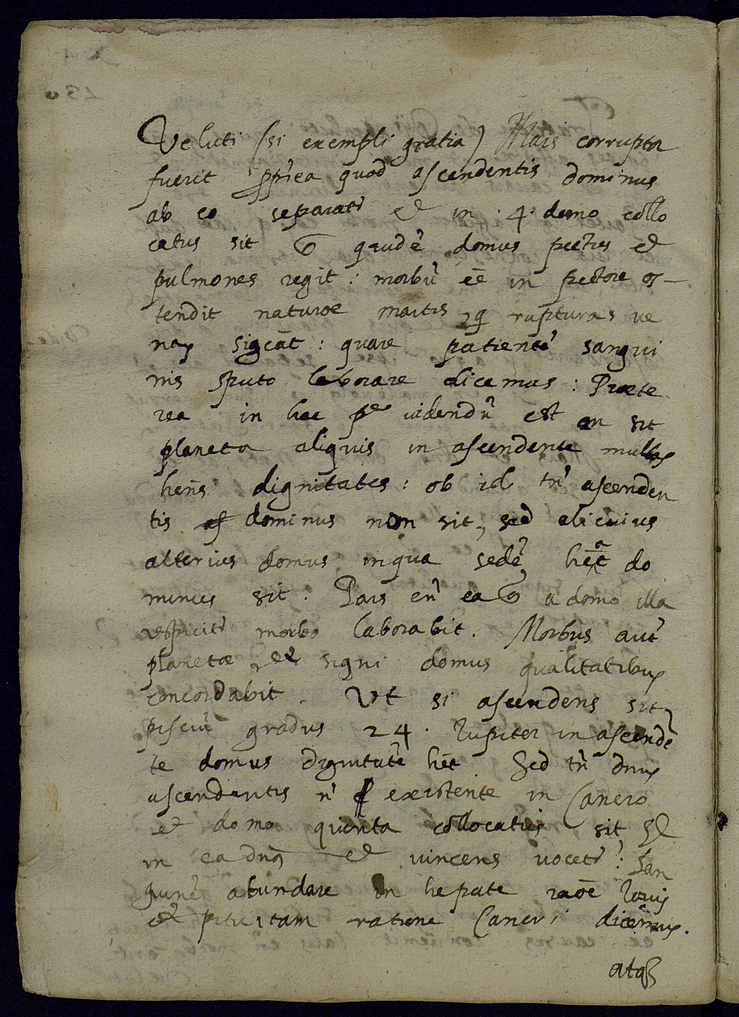 Veluti (si exempli gratia) Mars corrupta
fuerit pp̄rea quod ascendentis dominus
ab eo separatr̄ et in 4 domo collo
catus sit quādē domus pectus et
pulmones regit: morbū eē in pectore os-
tendit naturæ martis rupturas ve
nay sigcat̄: quare patientē sangui
nis sputo laborare dicemus: Præte
rea in hac videndū est an sit
planeta aliquis in ascendente multas
hens̄ dignitates: ob id tn̄ ascenden
tis dominus non sit, sed alicuius
alterius domus in qua sedē het̄ do
minus sit. Pars en̄ ea a domo illa
respicitr̄ morbo laborabit. Morbus aut̄
planetæ et signi domus qualitatibus
concordabit. Ut si ascendens sit
pisciū gradus 24. Iupiter in ascendē
te domus dignitatē het̄ sed tn̄ dnus
ascendentis n̄ existente in Cancro
et domo quinta collocatus sit
in ea dn̄s et vincens vocetr̄: San
guinē abundare in hepate raōe Iovis
et pituitam ratione Cancri dicemus.
atq3